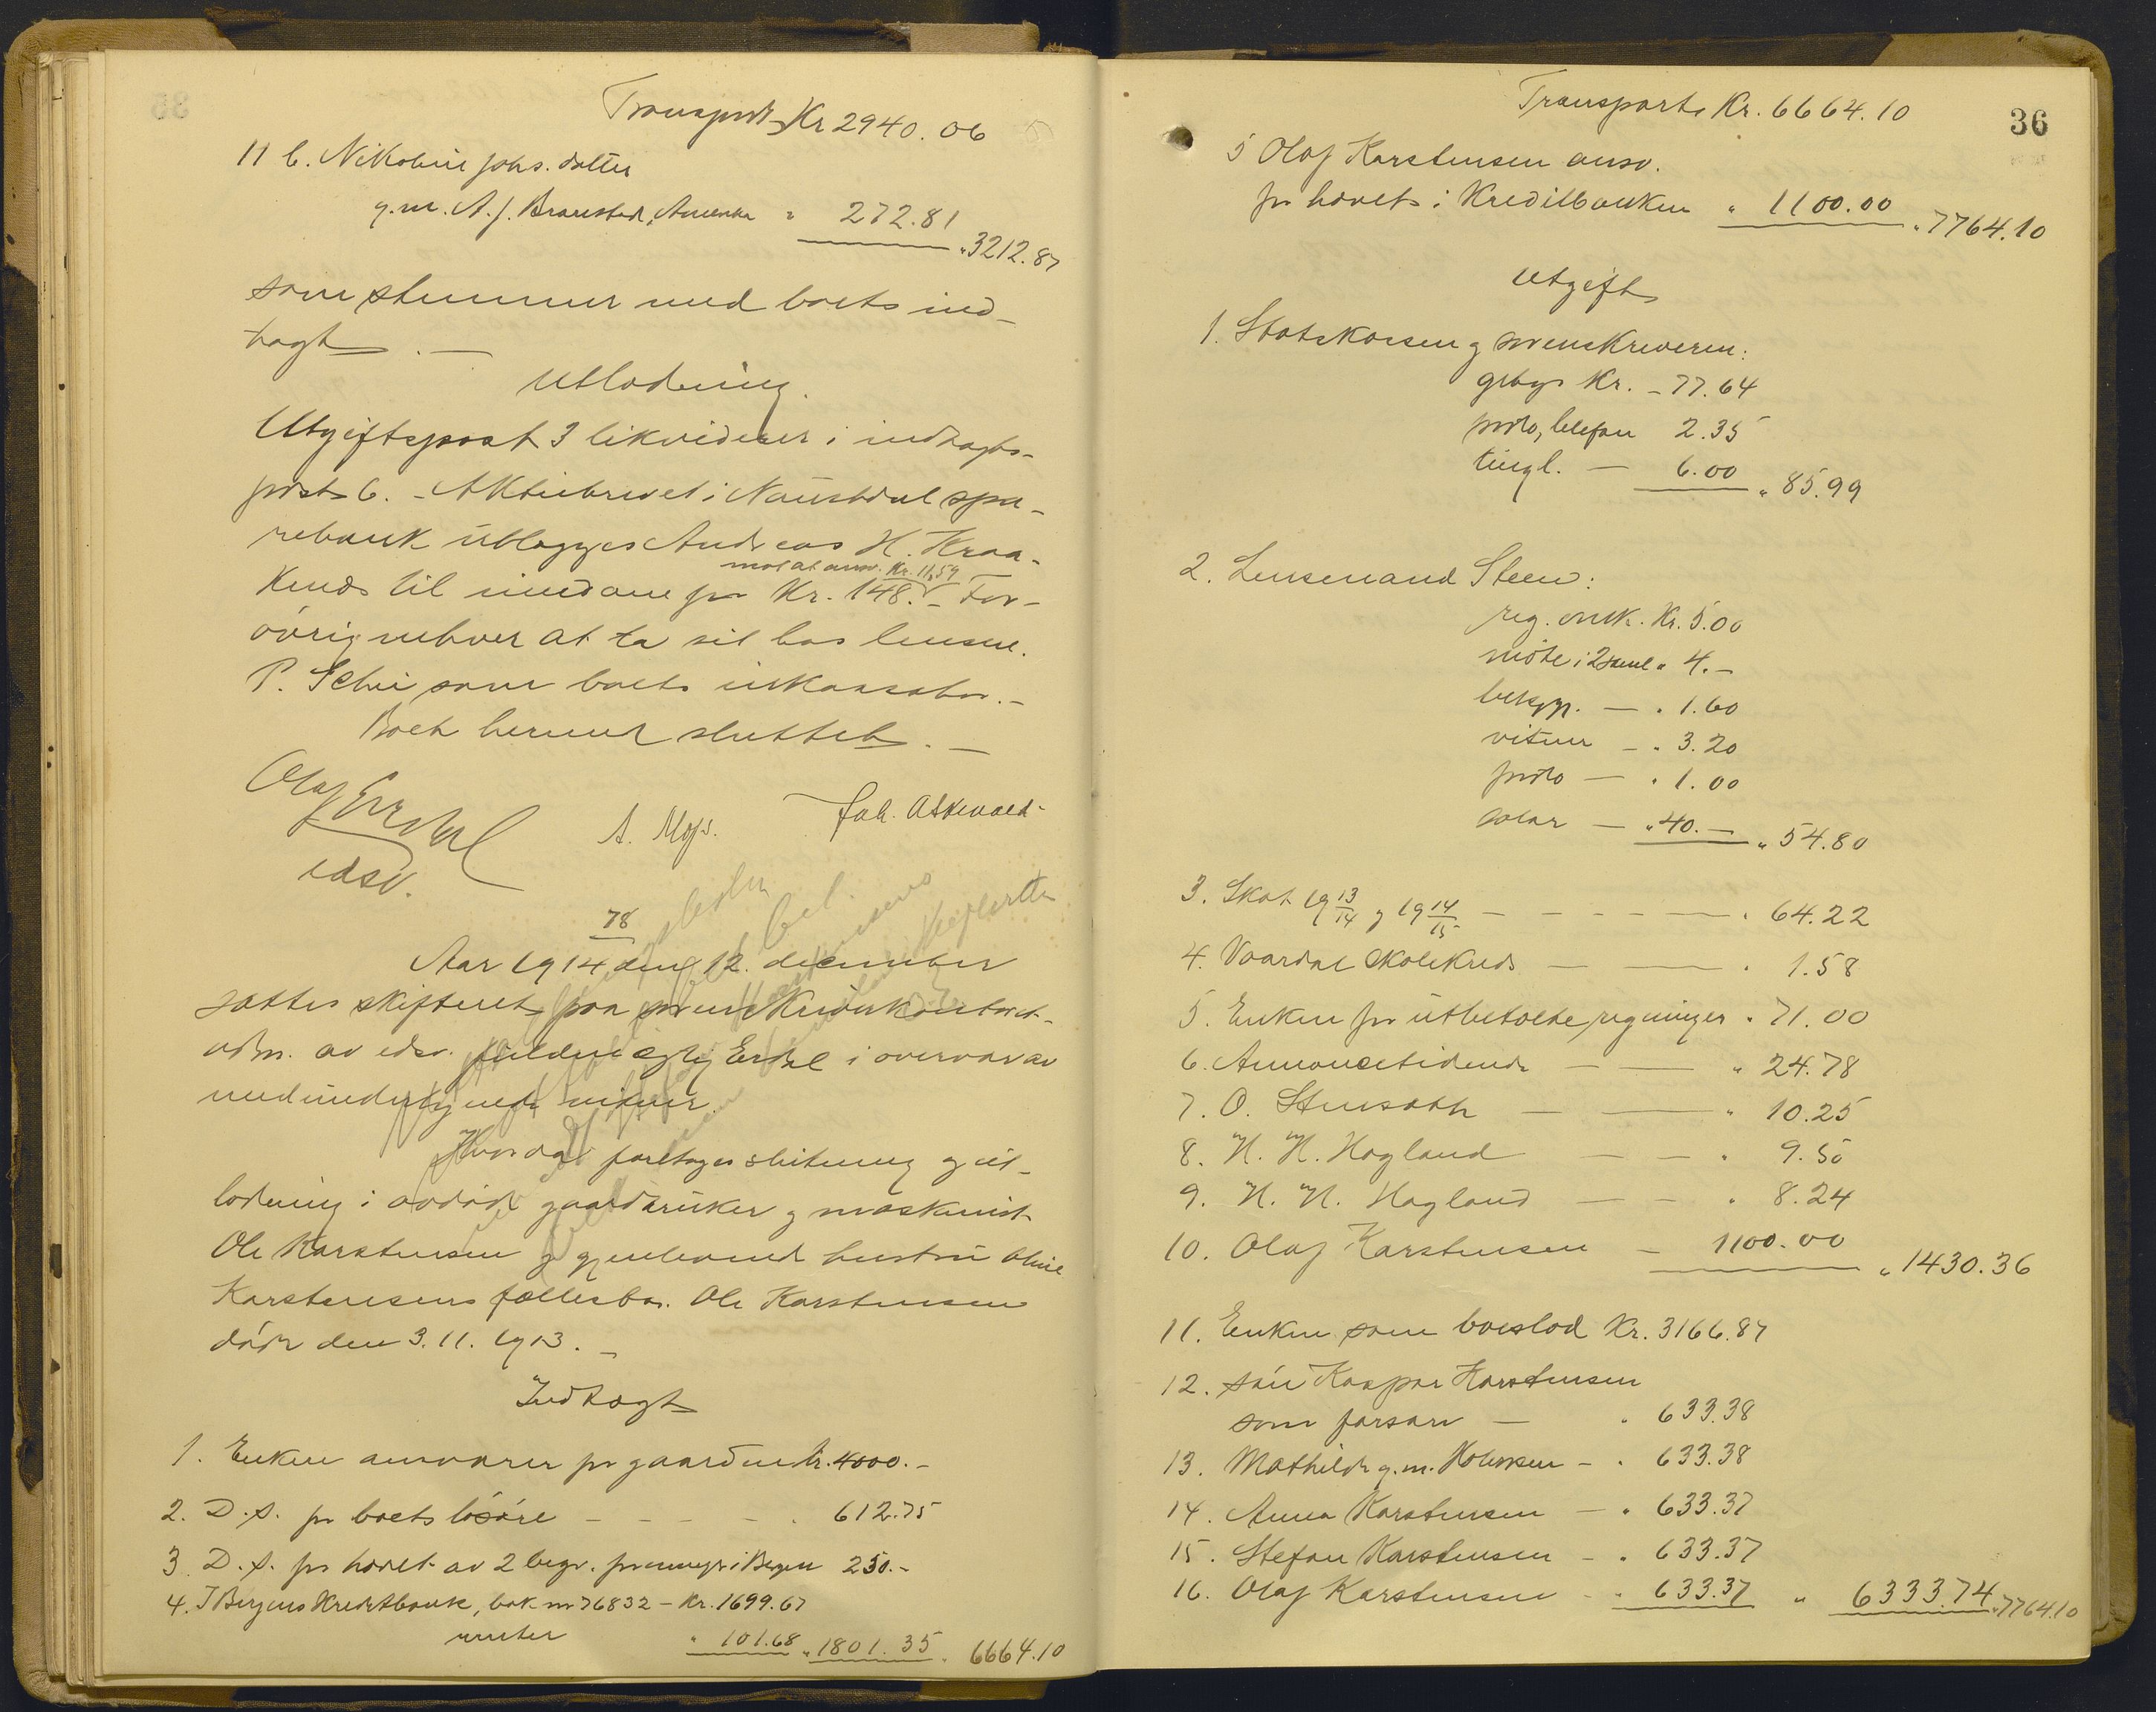 Transport Kr 2940.06
11 b. Nikoline Johs. datter
g.m. A. J. Branstad, Amerika " 272.81 " 3212.87
som stemmer med boets ind-
tægt. —
Utlodning.
Utgiftspost 3 likviderer i indtægts-
post 6. - Aktiebrevet i Naustdal spa-
rebank utlægges Andreas H. Kraa-
mot at ansv. Kr. 11,59
kenes til inddane for Kr. 148. - For-
øvrig at ta sit hos lensm.
P. Schei som boets inkassator. -
Boet hermed sluttet. —
Olaf Erdal
edsv.
A. Mys.
Joh. Askevold
78
Aar 1914 den 12. december
sattes skifteret paa sorenskriverkontoret
adm. av edsv. fuldmægtig Erdal i overvær av
medundertegnede vidner.
Hvorda foretages slutning og ut-
lodning i avdøde gaardbruker og maskinist
Ole Karstensen og gjenlevende hustru Oline
Karstensens fællesbo. Ole Karstensen
døde den 3.11.1913. -
Indtægt
1. Enken ansvarer for gaarden kr. 4000. -
2. D.s. for boets løsøre - - - - " 612.75
3. D.s. for hævet av 2 begr. i Bergen 250. -
4. I Bergens Kreditbank, bok nr 76832 - Kr. 1699.67
renter " 101.68 " 1801.35 " 6664.10
36
Transport Kr. 6664.10
5 Olaf Karstensen ansv.
for hævet i Kreditbanken " 1100.00 " 7764.10
Utgift
1. Statskassen og sorenskriveren:
gebyr Kr. - 77.64
porto, telefon 2.35
tingl. — 6.00 " 85.99
2. Lensmand Steen:
reg. omk. Kr. 5.00
møte i 2 saml " 4. -
bekgj. — " 1.60
vitner — " 3.20
porto — " 1.00
salær — " 40. — " 54.80
3. Skat 19 13/14 og 19 14/15 - - - - — " 64.22
4. Vaardal skolekreds — — " 1.58
5. Enken for utbetalte regninger " 71.00
6. Annoncetidende — — " 24.78
7. O. Stensæth — — " 10.25
8. H. H. Hagland — — " 9.50
9. H. N. Hagland — — " 8.24
10. Olaf Karstensen — 1100.00 " 1430.36
11. Enken som boeslod Kr. 3166.87
12. søn Kaspar Karstensen
som farsarv — " 633.38
13. Mathilde g.m. - " 633.38
14. Anna Karstensen — " 633.37
15. Stefan Karstensen - " 633.37
16. Olaf Karstensen - " 633.37 " 6333.74 " 7764.10